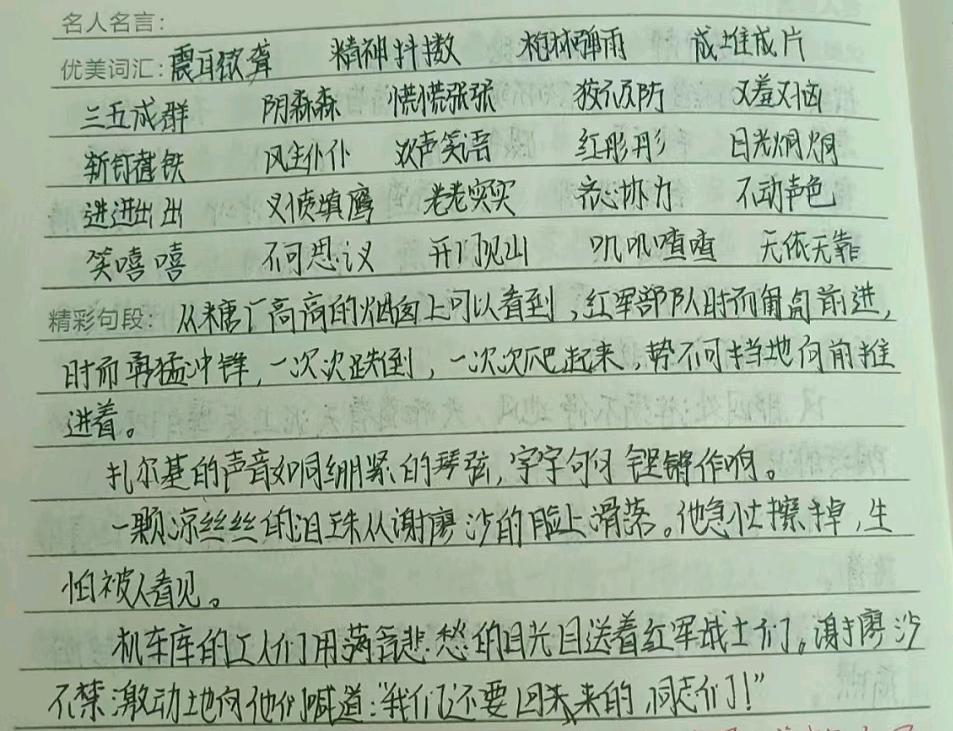 名人名言：
优美词汇：震耳欲聋 精神抖擞 枪林弹雨 成堆成片
三五成群 阴森森 慌慌张张 狡不及防 又羞又恼
斩钉截铁 风尘仆仆 欢声笑语 红彤彤 目光炯炯
进进出出 义愤填鹰 老老实实 齐心协力 不动声色
笑嘻嘻 不可思议 开门见山 叽叽喳喳 无依无靠
精彩句段：从糖厂高高的烟囱上可以看到，红军部队时而匍匐前进，
时而勇猛冲锋，一次次跌倒，一次次爬起来，势不可挡地向前推
进着。
扎尔基的声音如同绷紧的琴弦，字字句句铿锵作响。
一颗凉丝丝的泪珠从谢廖沙的脸上滑落。他急忙擦掉，生
怕被人看见。
机车库的工人们用满含悲愁的目光目送着红军战士们。谢廖沙
不禁激动地向他们喊道：“我们还要回来的，同志们！”